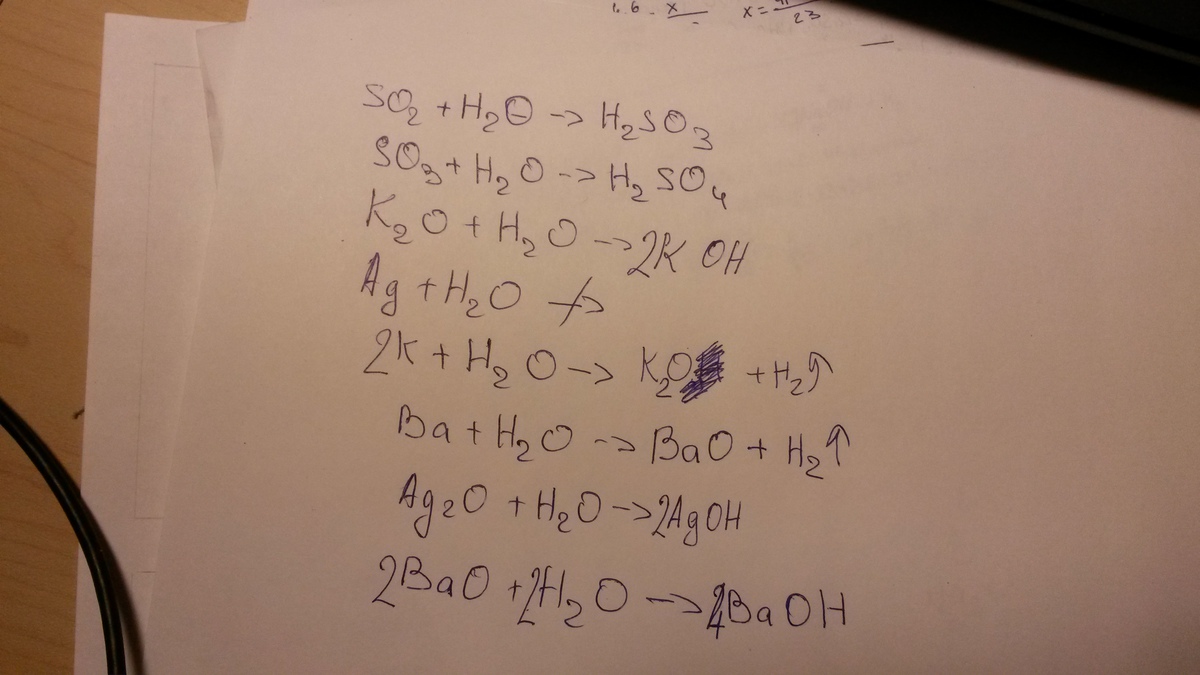 1. 6 - x x = 23
SO₂ + H₂O → H₂SO₃
SO₃ + H₂O → H₂SO₄
K₂O + H₂O → 2KOH
Ag + H₂O ↛
2K + H₂O → K₂O + H₂↑
Ba + H₂O → BaO + H₂↑
Ag₂O + H₂O → 2AgOH
2BaO + 2H₂O → BaOH